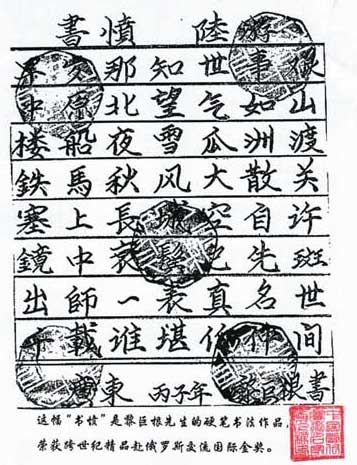 書憤 陸游
早岁那知世事艰
中原北望气如山
楼船夜雪瓜洲渡
鉄馬秋风大散关
塞上長城空自许
鏡中衰鬓已先斑
出師一表真名世
千載谁堪伯仲间
廣東 丙子年 黎巨根書
这幅“书愤”是黎巨根先生的硬笔书法作品，
荣获跨世纪精品赴俄罗斯交流国际金奖。